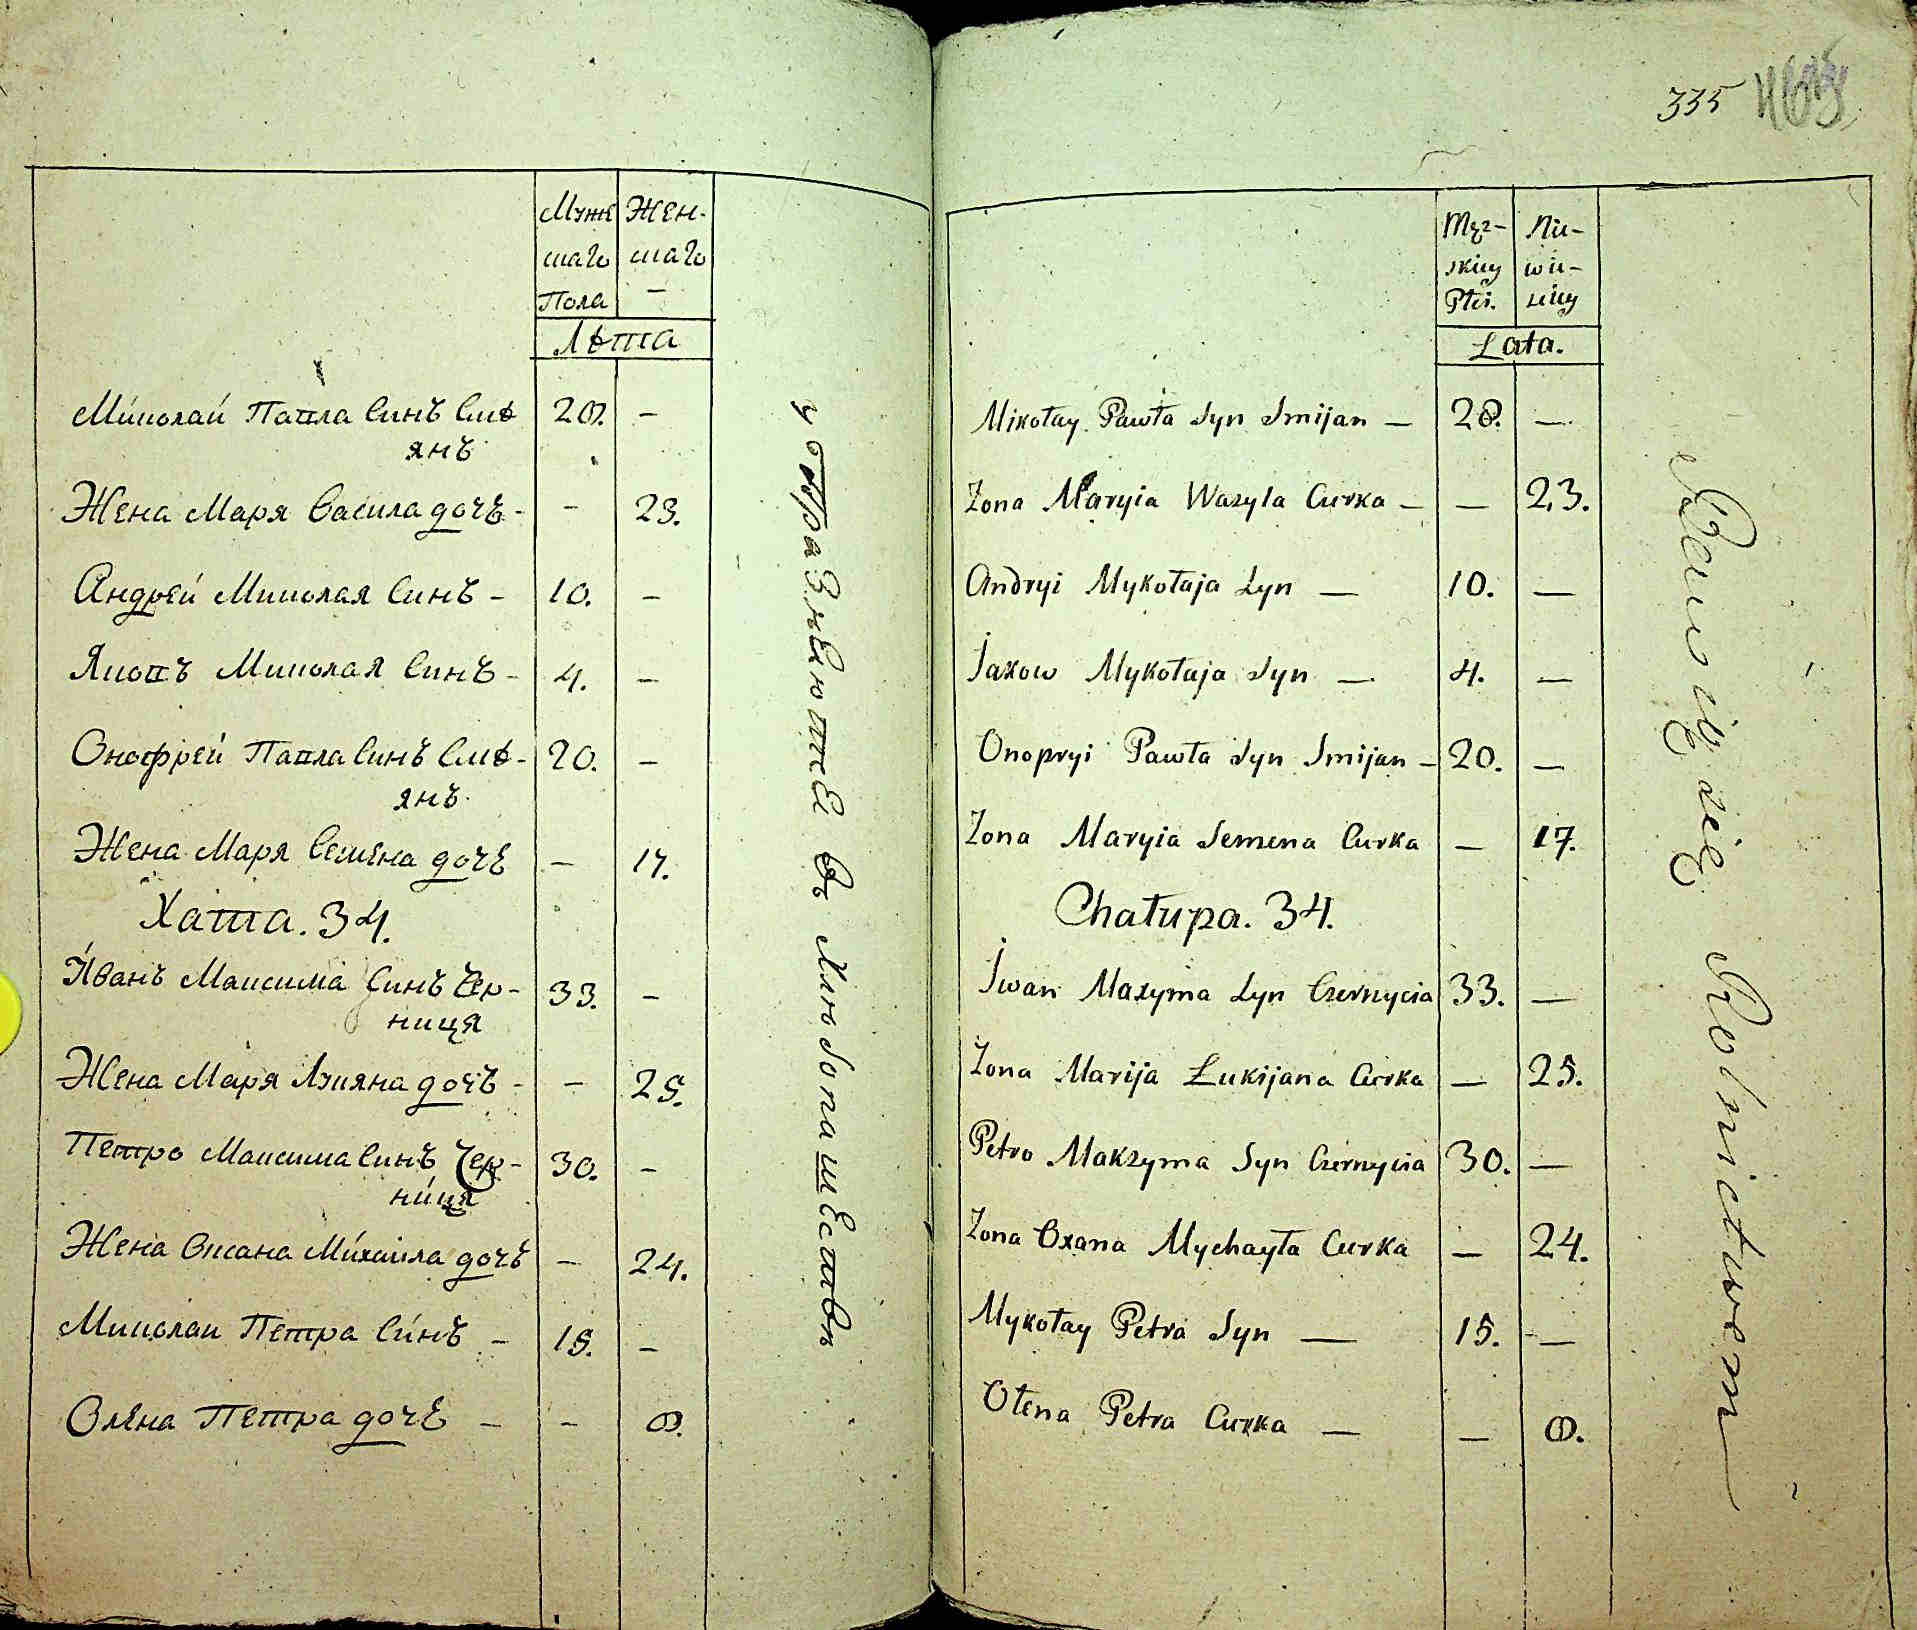 Муже Жен-
скаго скаго
Пола —
Лѣта
Миколай Павла Синъ Смѣ 28. —
янъ
Жена Маря Васила дочъ - — 23.
Андрей Миколая Синъ - 10. —
Яковъ Миколая Синъ - 4. —
Онофрей Павла Синъ Смѣ- 20. —
янъ.
Жена Маря Семена дочъ — 17.
Хата. 34.
Иванъ Максима Синъ Чер- 33. —
ниця
Жена Маря Лукяна дочъ - — 25.
Петро Максима Синъ Чер- 30. —
ниця
Жена Оксана Михаила дочъ — 24.
Миколай Петра Синъ — 15. —
Олена Петра дочъ — — 8.
упражнеюшее въ хлѣбопашествѣ
335
Męz- Nie-
skiey wie-
Płci. sciey
Lata.
Mikołay Pawła Syn Smijan — 28. —
Zona Maryia Wasyla Curka — — 23.
Andryi Mykołaja Syn — 10. —
Jakow Mykołaja Syn — 4. —
Onopryi Pawła Syn Smijan — 20. —
Zona Maryia Semena Curka — 17.
Chałupa. 34.
Iwan Maxyma Syn Czernycia 33. —
Zona Marija Łukijana Curka — 25.
Petro Makzyma Syn Czernycia 30. —
Zona Oxana Mychayła Curka — 24.
Mykołay Petra Syn — 15. —
Ołena Petra Curka — — 8.
Bawią się Rolnictwem